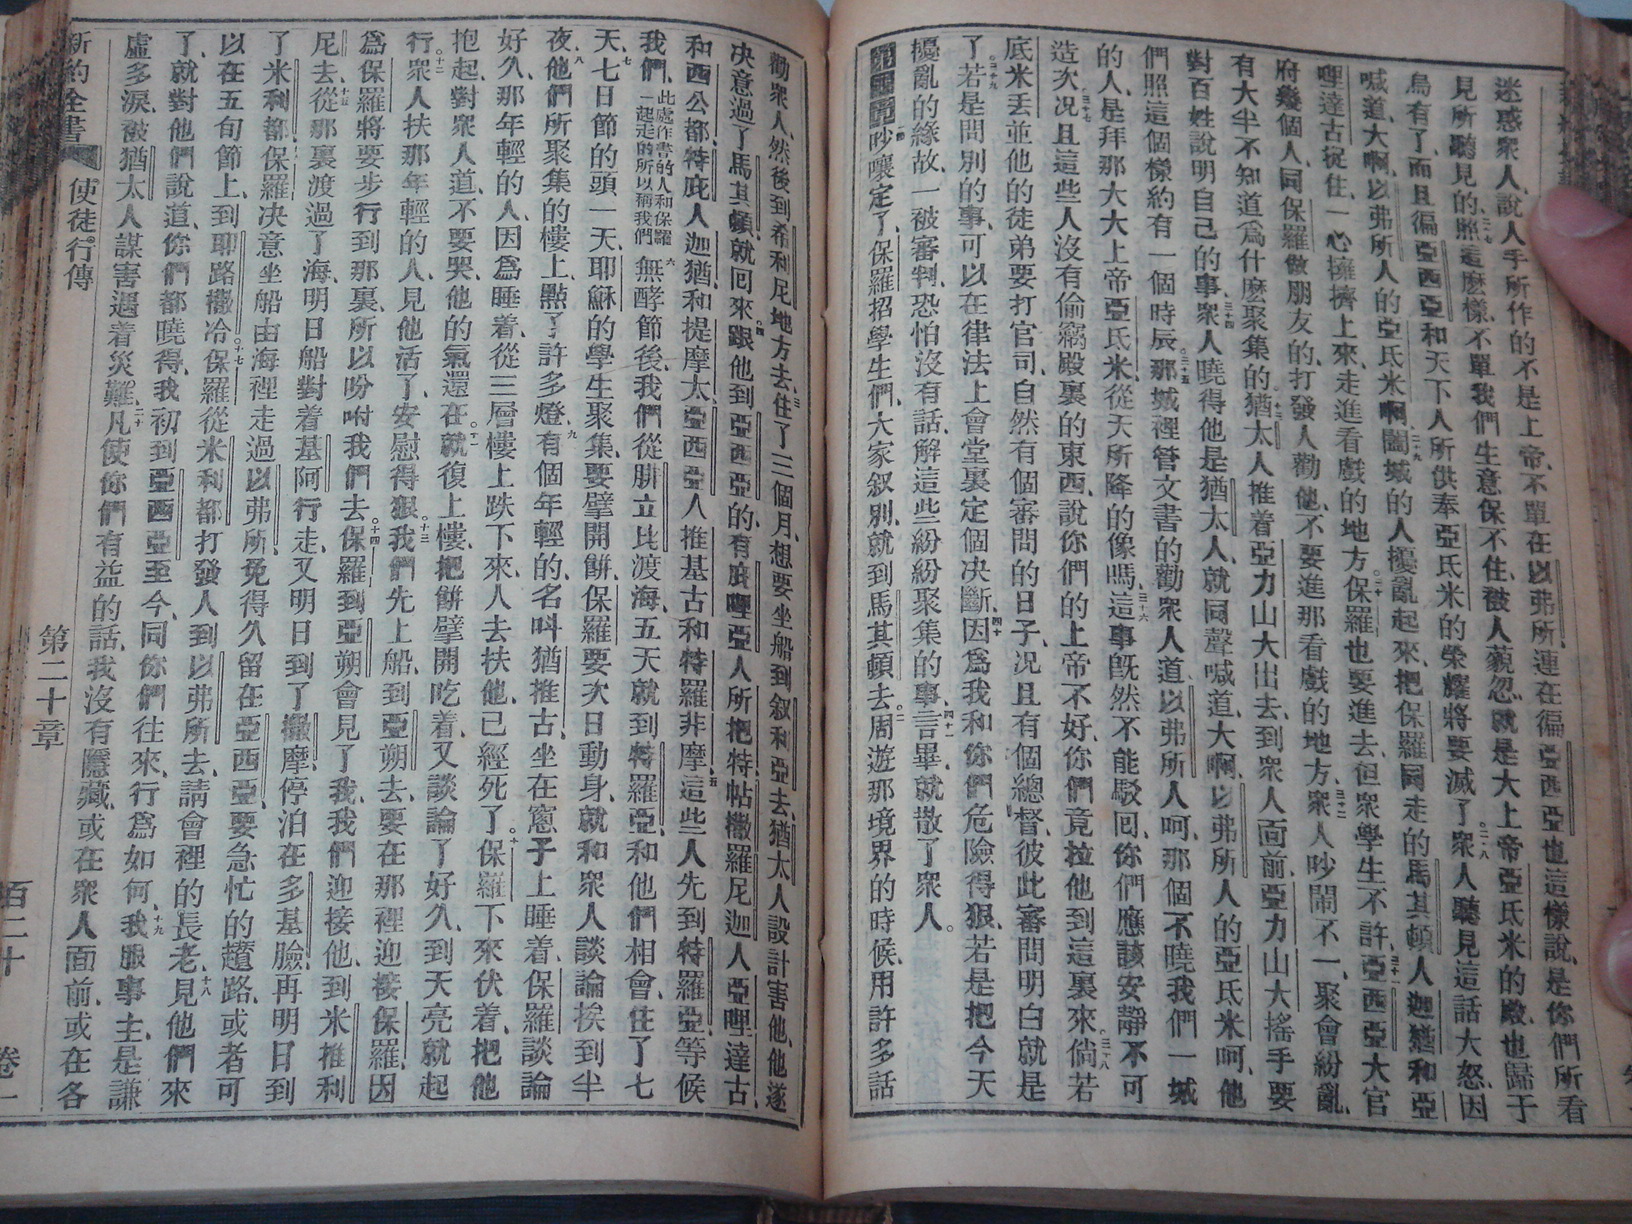 迷惑衆人、說人手所作的不是上帝、不單在以弗所、連在徧亞西亞也這樣說、是你們所看
見所聽見的。二十七照這麽樣、不單我們生意保不住、被人藐忽、就是大上帝亞氏米的殿、也歸于
烏有了、而且徧亞西亞和天下人所供奉亞氏米的榮耀將要滅了。二十八衆人聽見這話大怒、因
喊道、大啊、以弗所人的亞氏米啊。二十九闔城的人擾亂起來、把保羅同走的馬其頓人迦猶和亞
哩達古捉住、一心擁擠上來、走進看戲的地方。三十保羅也要進去、但衆學生不許。三十一亞西亞大官
府幾個人、同保羅做朋友的、打發人勸他、不要進那看戲的地方。三十二衆人吵鬧不一、聚會紛亂、
有大半不知道爲什麽聚集的。三十三猶太人推着亞力山大出去、到衆人面前、亞力山大搖手要
對百姓說明自己的事。三十四衆人曉得他是猶太人、就同聲喊道、大啊、以弗所人的亞氏米呵、他
們照這個樣約有一個時辰。三十五那城裡管文書的勸衆人道、以弗所人呵、那個不曉我們一城
的人、是拜那大大上帝亞氏米、從天所降的像嗎。三十六這事旣然不能駁回、你們應該安靜不可
造次。三十七况且這些人沒有偷竊殿裏的東西、說你們的上帝不好、你們竟拉他到這裏來。三十八倘若
底米丟並他的徒弟要打官司、自然有個審問的日子、况且有個總督、彼此審問明白就是
了。三十九若是問別的事、可以在律法上會堂裏定個决斷。四十因爲我和你們危險得狠、若是把今天
擾亂的緣故、一被審判、恐怕沒有話、解這些紛紛聚集的事。四十一言畢、就散了衆人。
吵嚷定了、保羅招學生們、大家叙別、就到馬其頓去。二周遊那境界的時候、用許多話
勸衆人、然後到希利尼地方去。三住了三個月、想要坐船到叙利亞去、猶太人設計害他、他遂
决意過了馬其頓、就回來。四跟他到亞西亞的、有庇哩亞人所把特、帖撒羅尼迦人亞哩達古、
和西公都、特庇人迦猶、和提摩太、亞西亞人推基古和特羅非摩。五這些人先到特羅亞、等候
我們、此處作書的人和保羅一起走的所以稱我們六無酵節後、我們從腓立比渡海、五天就到特羅亞、和他們相會、住了七
天。七七日節的頭一天、耶穌的學生聚集、要擘開餅、保羅要次日動身、就和衆人談論挨到半
夜。八他們所聚集的樓上、點了許多燈。九有個年輕的、名叫猶推古、坐在窻子上睡着、保羅談論
好久、那年輕的人、因爲睡着、從三層樓上跌下來、人去扶他、已經死了。十保羅下來伏着、把他
抱起、對衆人道、不要哭、他的氣還在。十一就復上樓、把餅擘開吃着、又談論了好久、到天亮就起
行。十二衆人扶那年輕的人、見他活了、安慰得狠。十三我們先上船、到亞朔去、要在那裡迎接保羅、因
爲保羅將要步行到那裏、所以吩咐我們去。十四保羅到亞朔會見了我、我們迎接他、到米推利
尼去。十五從那裏渡過了海、明日船對着基阿行走、又明日到了撒摩、停泊在多基臉、再明日到
了米利都。保羅决意坐船由海裡走過以弗所、免得久留在亞西亞、要急忙的趲路、或者可
以在五旬節上、到耶路撒冷。十七保羅從米利都打發人到以弗所去、請會裡的長老。十八見他們來
了、就對他們說道、你們都曉得、我初到亞西亞至今、同你們往來、行爲如何。十九我服事主、是謙
虛多淚、被猶太人謀害遇着災難。二十凡使你們有益的話、我沒有隱藏、或在衆人面前、或在各
新約全書 使徒行傳 第二十章 百二十 卷一